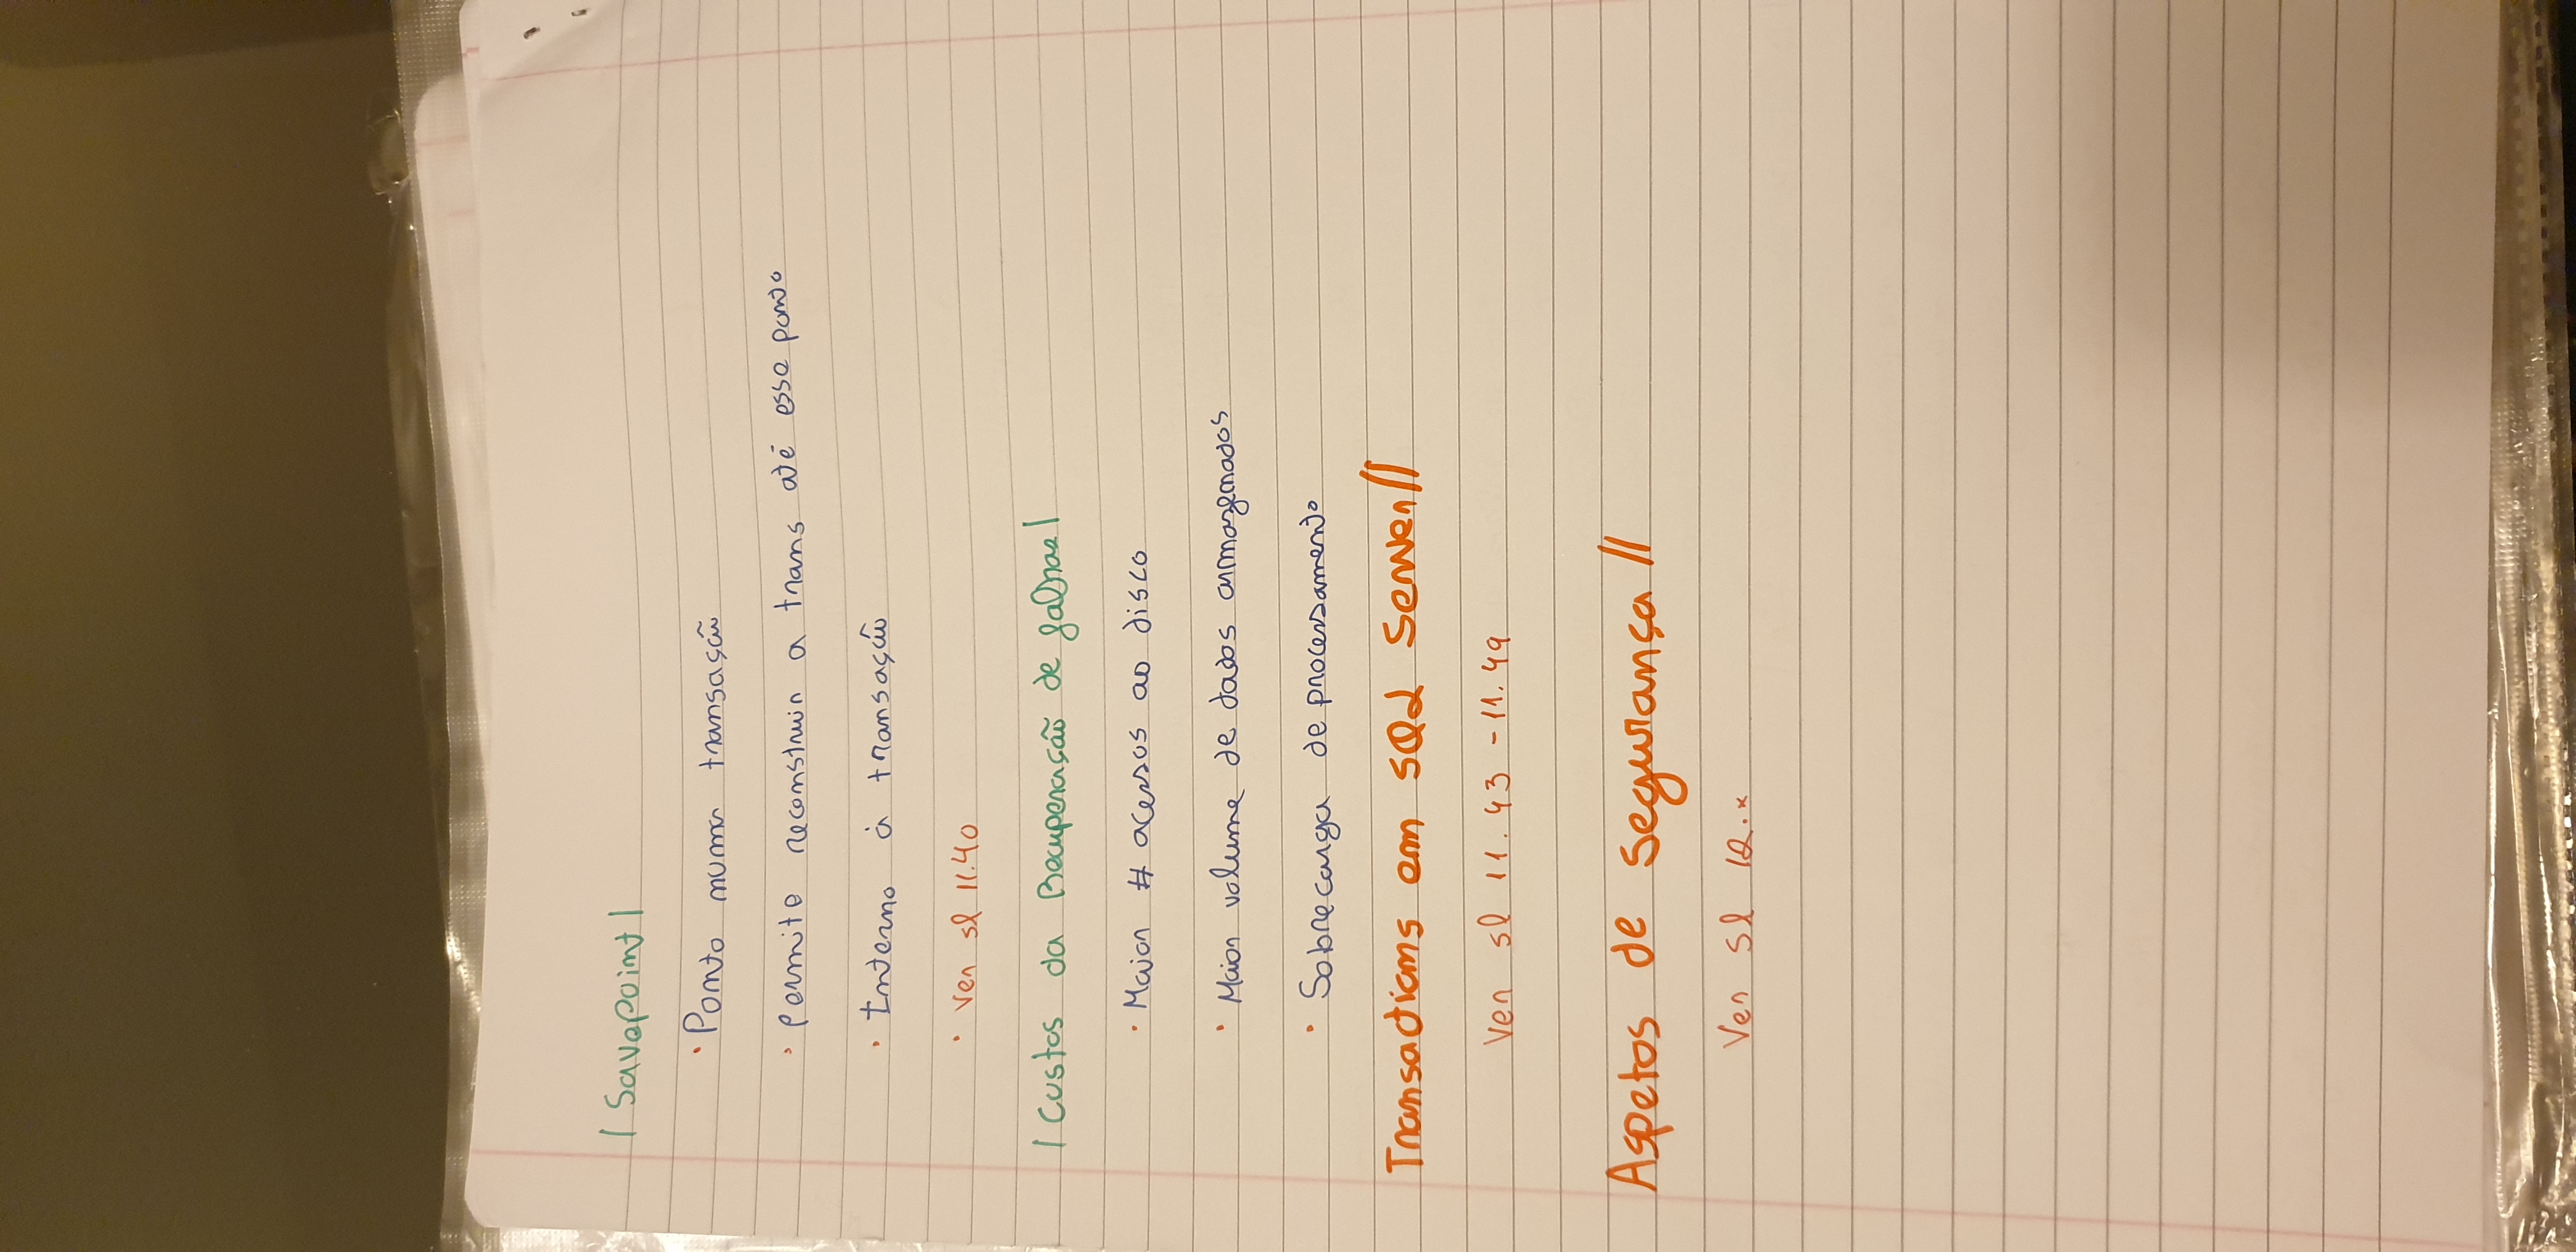 | Savepoint |
• Ponto numa transação
• Permite reconstruir a trans até esse ponto
• Interno à transação
• Ver sl 11.40
| Custos da Recuperação de falhas |
• Maior # acessos ao disco
• Maior volume de dados armazenados
• Sobrecarga de processamento
Transactions em SQL Server //
Ver sl 11.43 - 11.49
Aspetos de segurança //
Ver sl 12.x